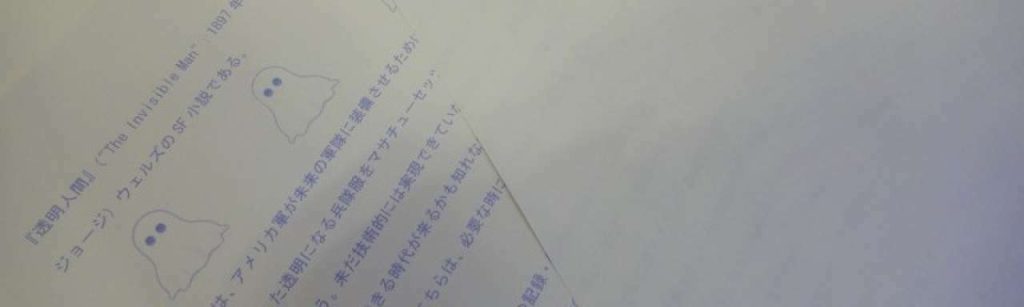 『透明人間』("The Invisible Man" 1897年
ジョージ) ウェルズのSF小説である。
は、アメリカ軍が未来の軍隊に装備させるため
た透明になる兵隊服をマサチューセッ
う。未だ技術的には実現できてい
きる時代が来るかも知れな
ちらは、必要な時に
の記録、